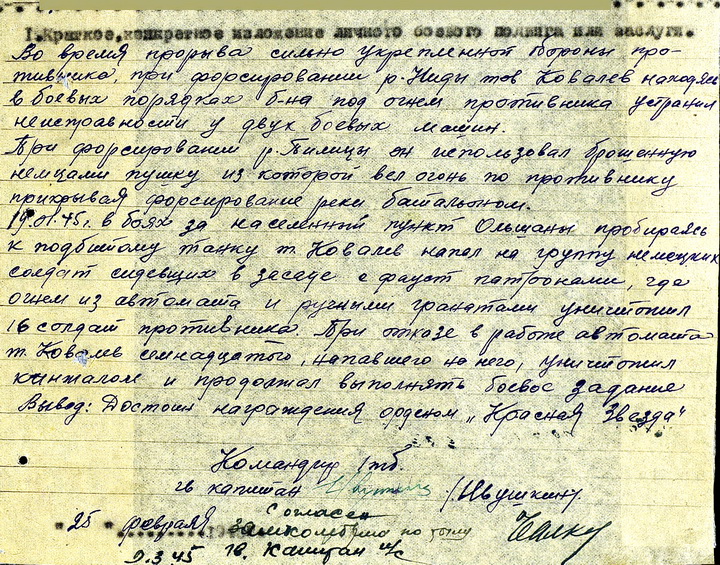 I. Краткое, конкретное изложение личного боевого подвига или заслуги.
Во время прорыва сильно укрепленной обороны про-
тивника, при форсировании р. Ниды тов Ковалев находясь
в боевых порядках б-на под огнем противника устранил
неисправности у двух боевых машин.
При форсировании р. Пилицы он использовал брошенную
немцами пушку из которой вел огонь по противнику
прикрывая форсирование реки батальоном.
19.01.45г. в боях за населенный пункт Ольшаны пробираясь
к подбитому танку т. Ковалев напал на группу немецких
солдат сидевших в засаде с фауст патронами, где
огнем из автомата и ручными гранатами уничтожил
16 солдат противника. При отказе в работе автомата
т. Ковалев семнадцатого, напавшего на него, уничтожил
кинжалом и продолжал выполнять боевое задание
Вывод: Достоин награждения орденом „Красная Звезда"
Командир 1 тб.
гв капитан /Ивушкин/.
Согласен
"25" февраля
по тылу
9.3.45 гв. Капитан